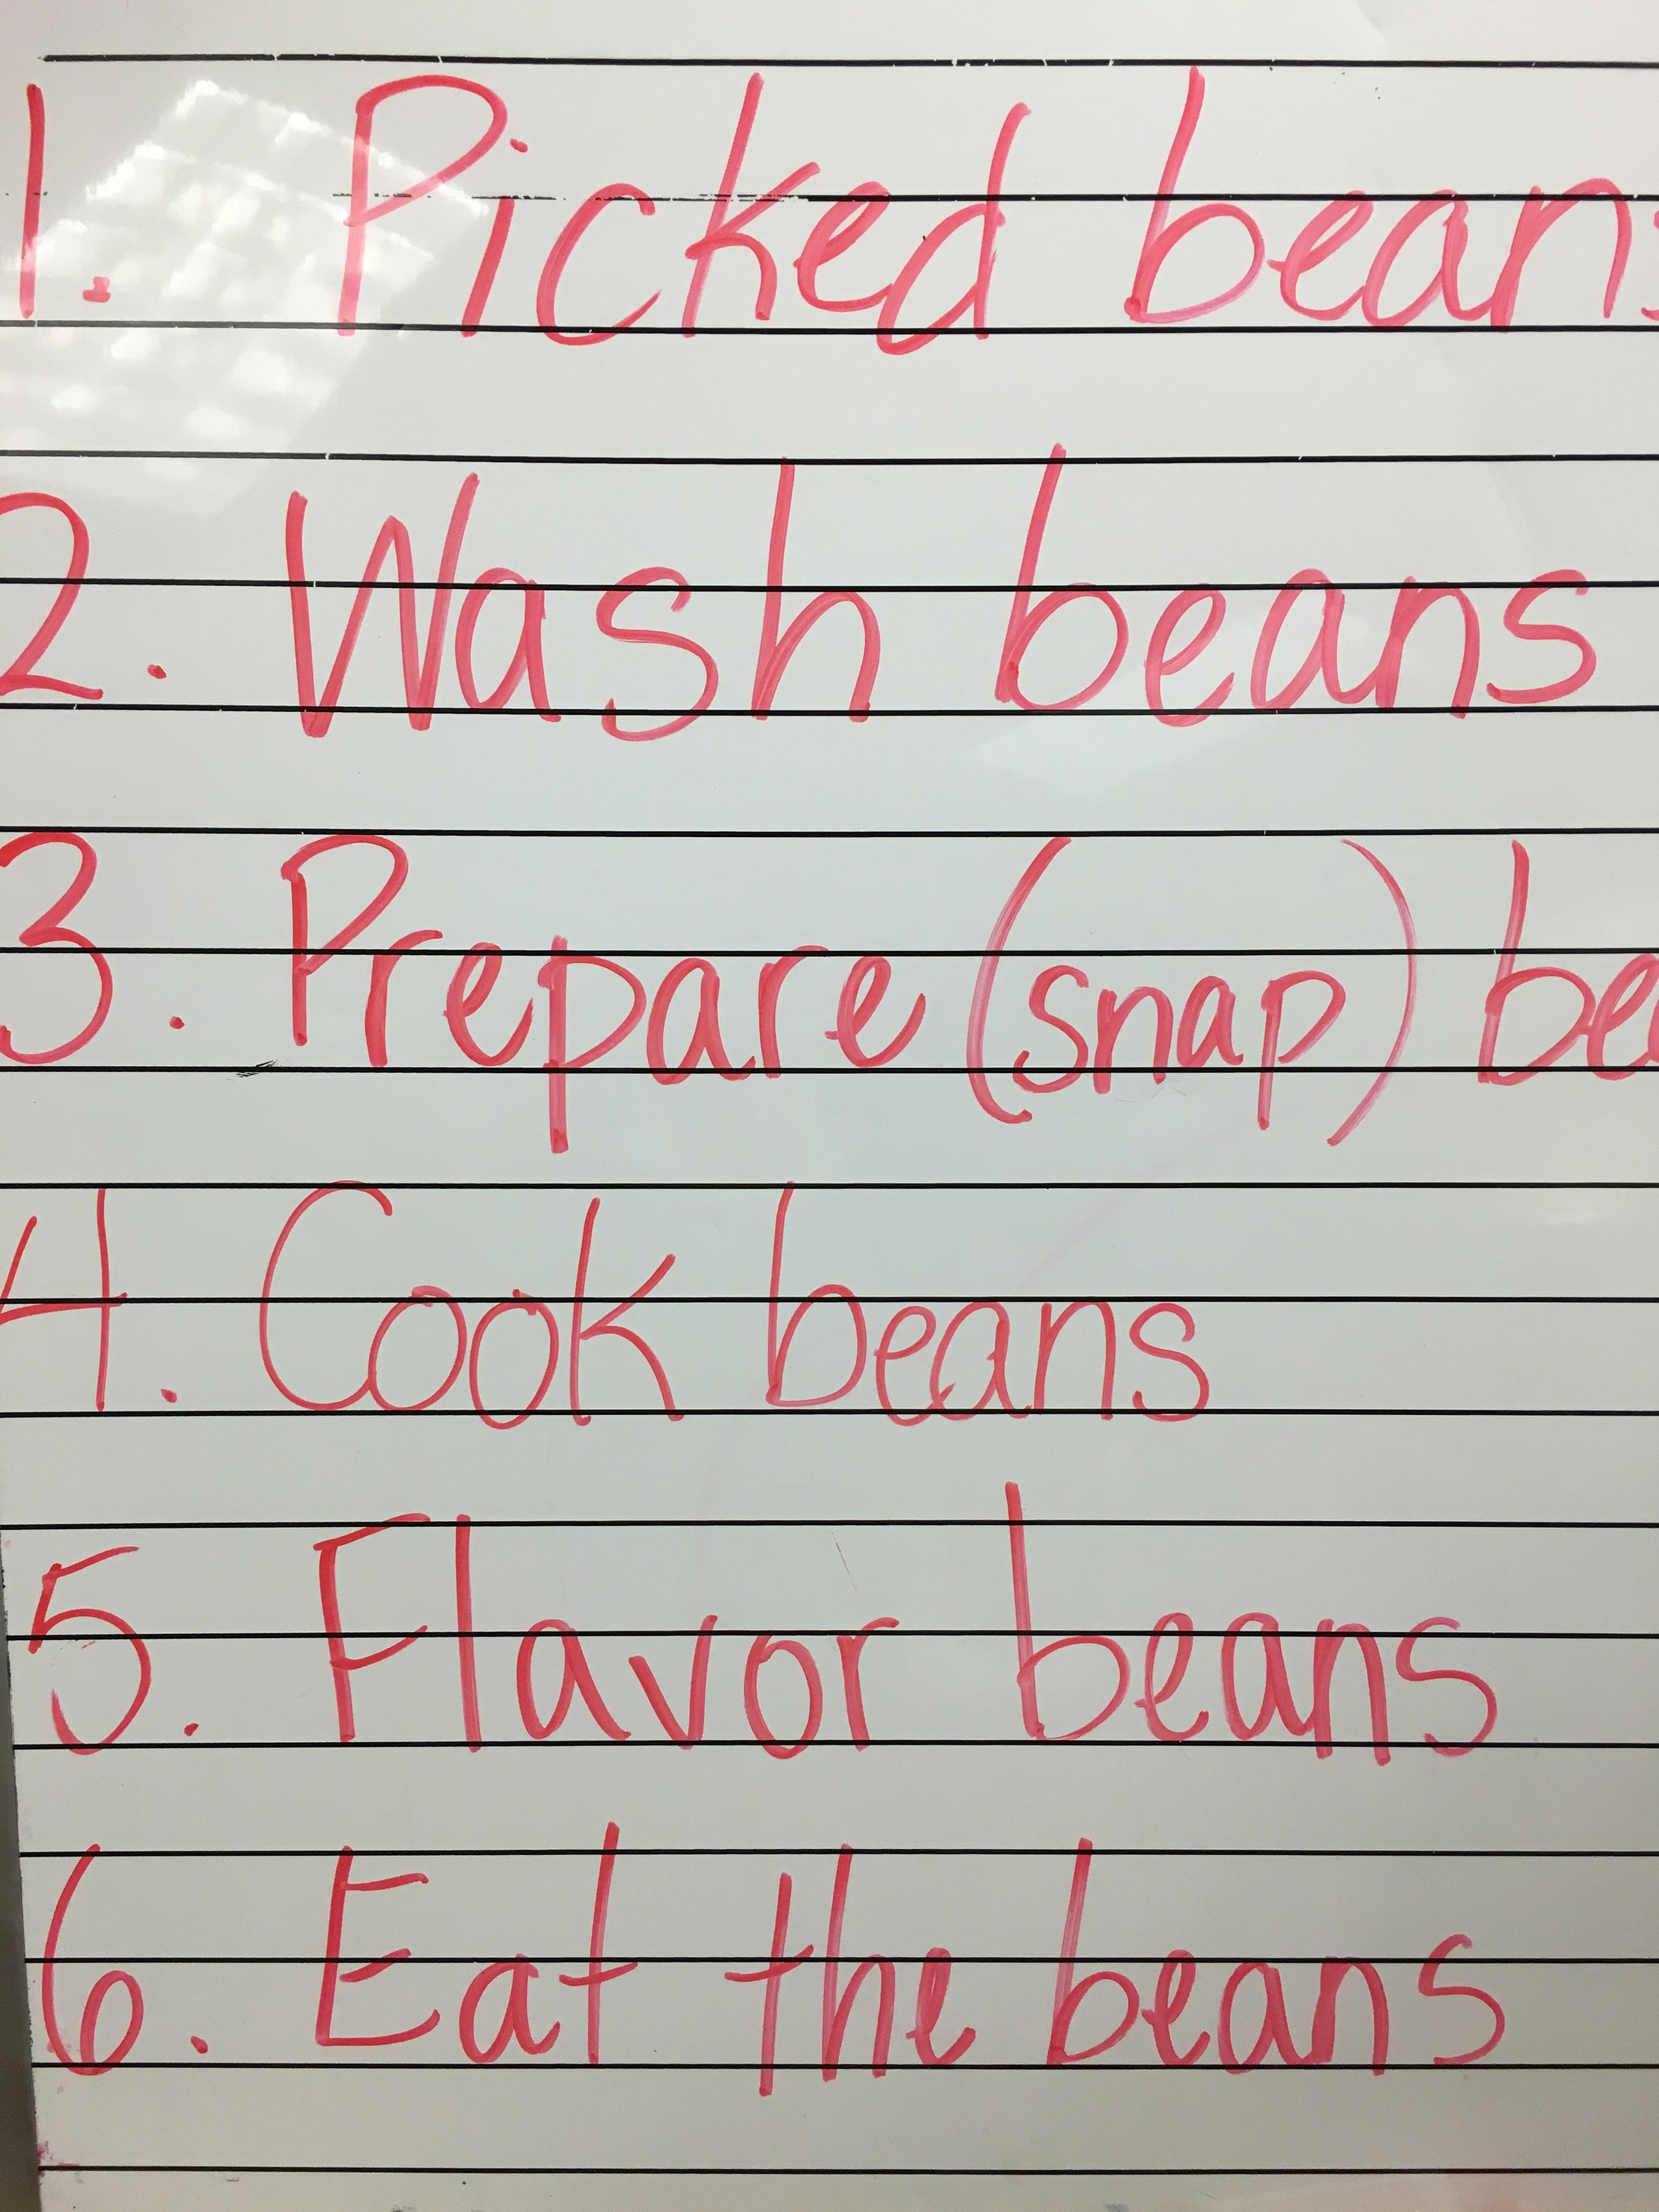 1. Picked beans
2. Wash beans
3. Prepare (snap) be
4. Cook beans
5. Flavor beans
6. Eat the beans